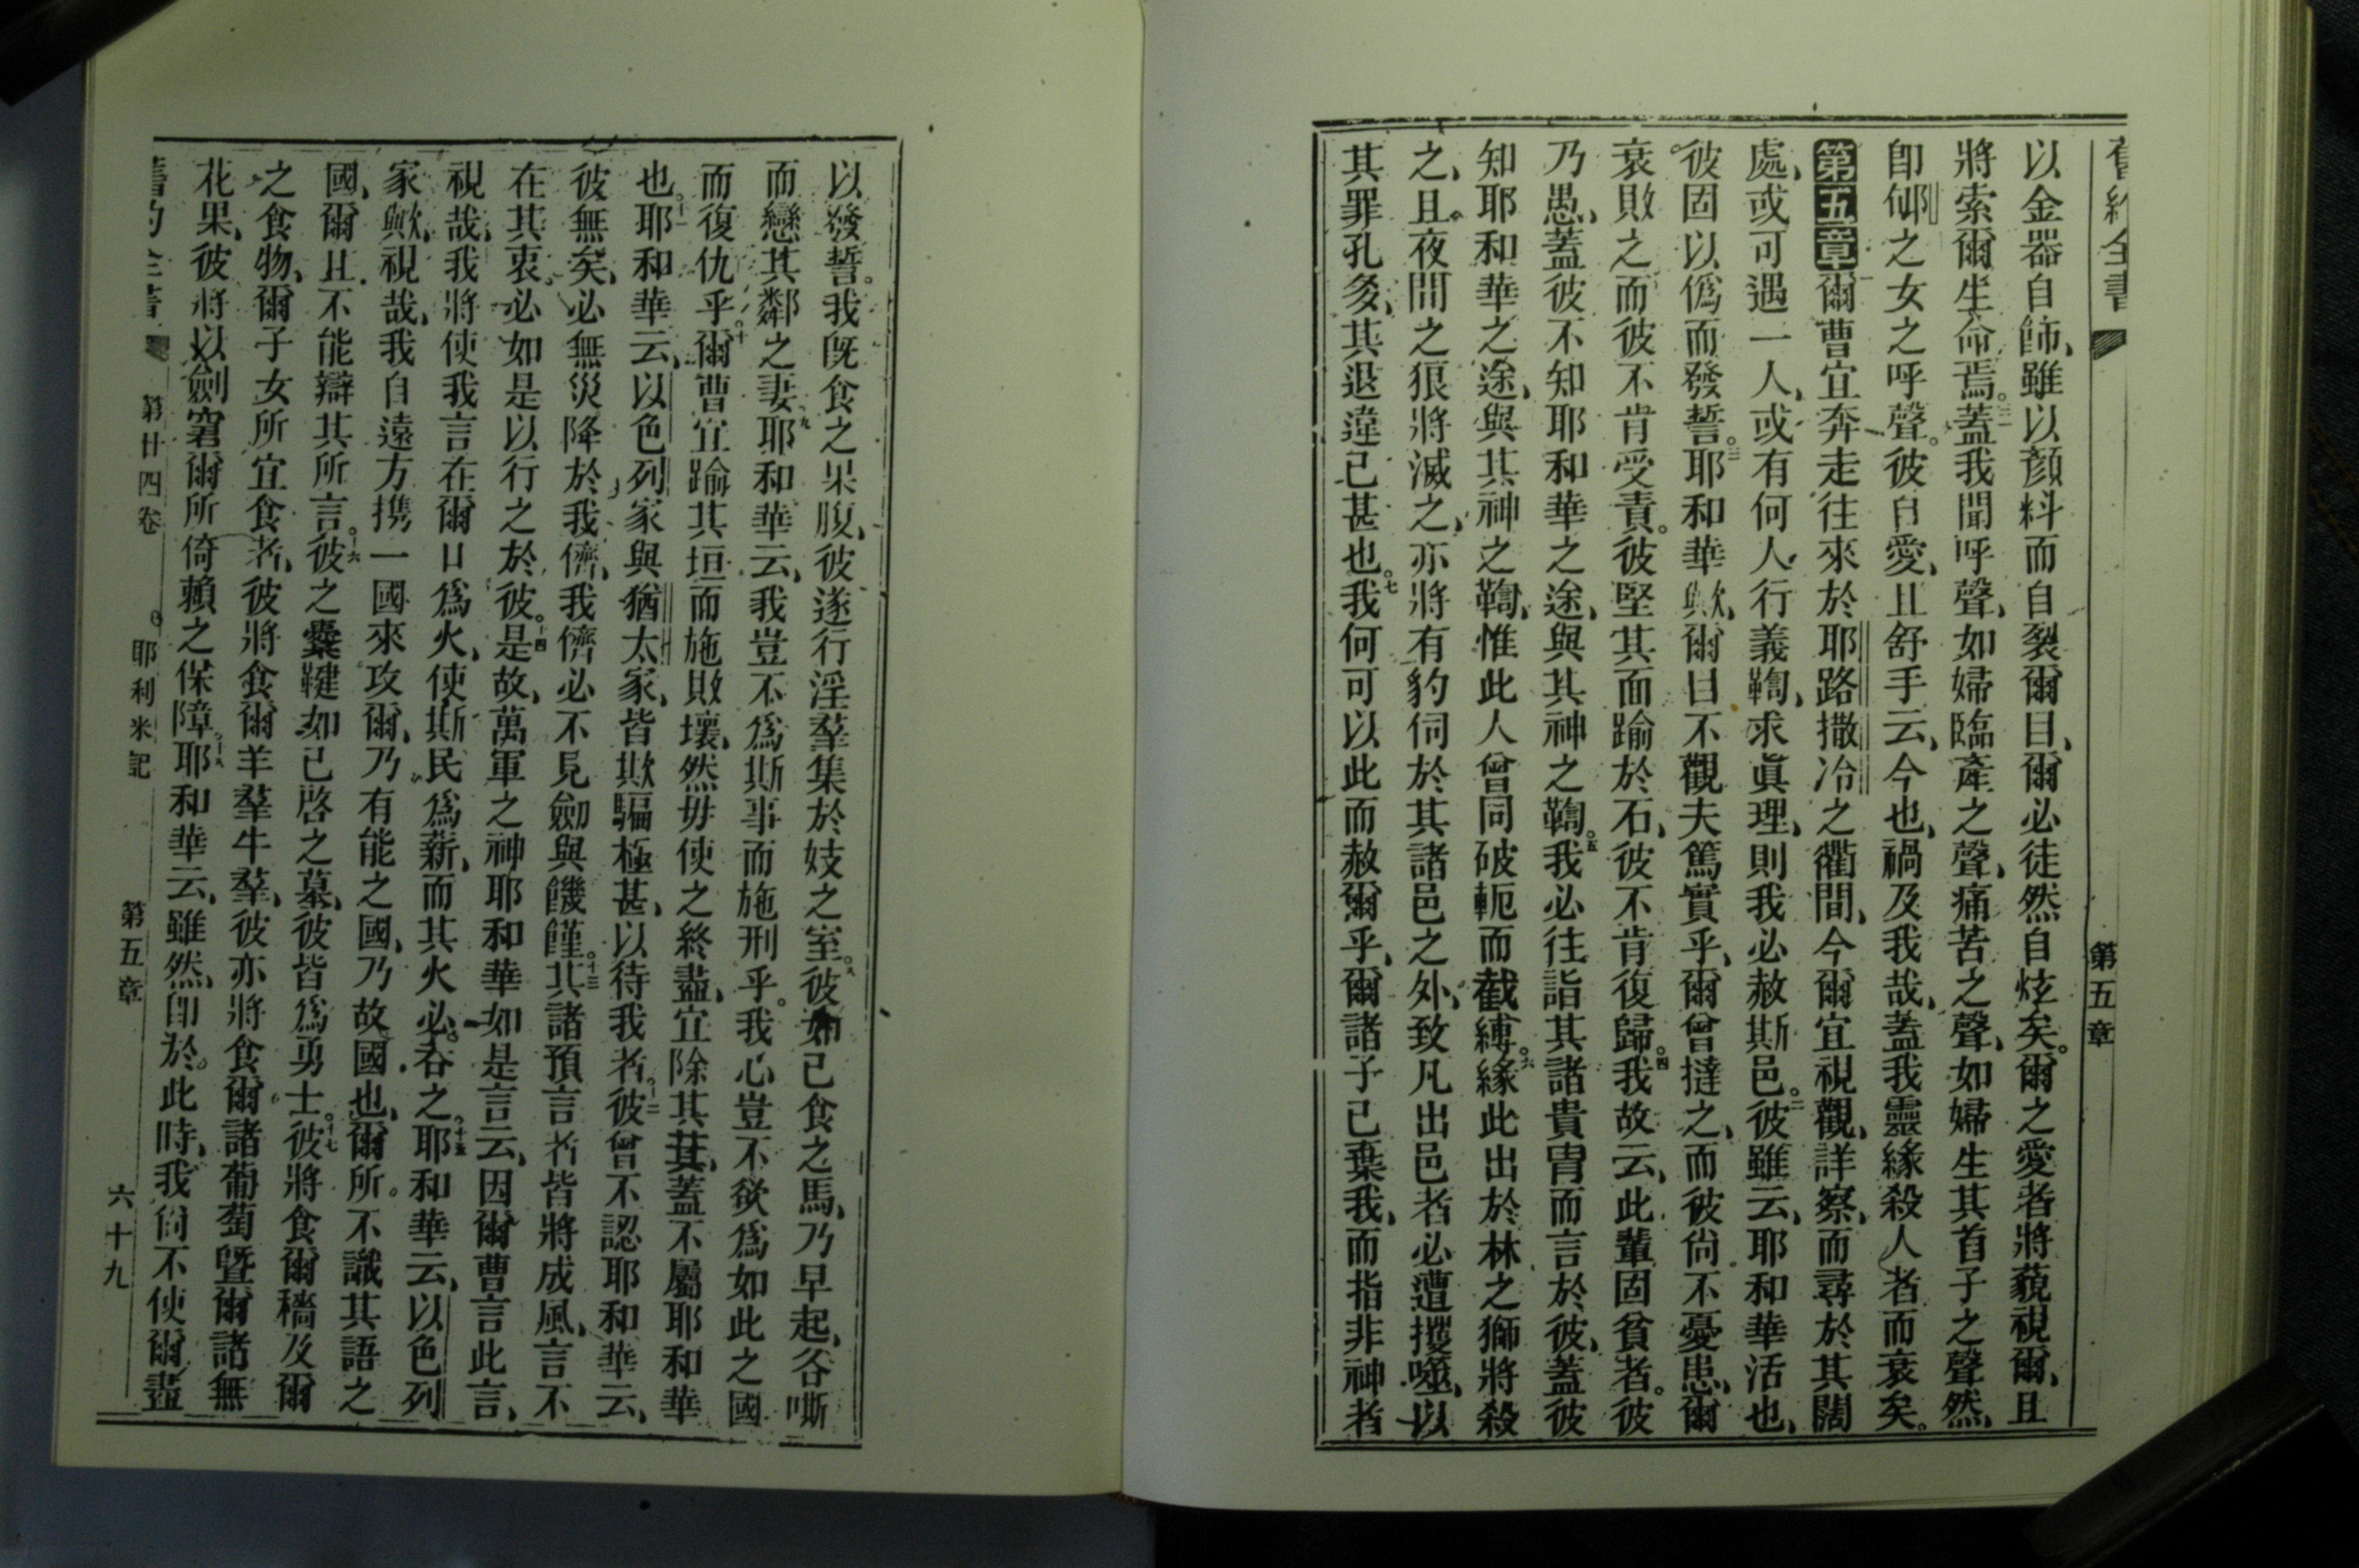 第五章
以金器自飾、雖以顔料而自裂爾目、爾必徒然自炫矣。爾之愛者將藐視爾、且
將索爾生命焉。蓋我聞呼聲、如婦臨產之聲、痛苦之聲、如婦生其首子之聲然、
卽郇之女之呼聲。彼自愛、且舒手云、今也、禍及我哉、蓋我靈緣殺人者而衰矣。
第五章 一爾曹宜奔走往來於耶路撒冷之衢間、今爾宜視觀、詳察、而尋於其闊
處、或可遇一人、或有何人行義鞫、求眞理、則我必赦斯邑。二彼雖云、耶和華活也、
彼固以僞而發誓。三耶和華歟、爾目不觀夫篤實乎、爾曾撻之、而彼尙不憂患、爾
衰敗之而彼不肯受責。彼堅其面踰於石、彼不肯復歸。四我故云、此輩固貧者。彼
乃愚、蓋彼不知耶和華之途、與其神之鞫。五我必往詣其諸貴胄而言於彼、蓋彼
知耶和華之途、與其神之鞫、惟此人曾同破軛而截縛。六緣此出於林之獅將殺
之、且夜間之狼將滅之、亦將有豹伺於其諸邑之外、致凡出邑者必遭攫噬、以
其罪孔多、其退違已甚也。七我何可以此而赦爾乎、爾諸子已棄我、而指非神者
以發誓。我旣食之果腹、彼遂行淫羣集於妓之室。八彼如已食之馬、乃早起、各嘶
而戀其鄰之妻。九耶和華云、我豈不爲斯事而施刑乎。我心豈不欲爲如此之國
而復仇乎。十爾曹宜踰其垣而施敗壞、然毋使之終盡、宜除其其、蓋不屬耶和華
也。十一耶和華云、以色列家與猶太家、皆欺騙極甚、以待我者。十二彼曾不認耶和華云、
彼無矣、必無災降於我儕、我儕必不見劍與饑饉。十三其諸預言者皆將成風、言不
在其衷。必如是以行之於彼。十四是故、萬軍之神耶和華如是言云、因爾曹言此言、
視哉、我將使我言在爾口爲火、使斯民爲薪、而其火必吞之。十五耶和華云、以色列
家歟、視哉、我自遠方攜一國來攻爾、乃有能之國、乃故國也、爾所不識其語之
國、爾且不能辯其所言。十六彼之櫜鞬如已啓之墓、彼皆爲勇士。十七彼將食爾穡及爾
之食物、爾子女所宜食者、彼將食爾羊羣牛羣、彼亦將食爾諸葡萄曁爾諸無
花果、彼將以劍窘爾所倚賴之保障。十八耶和華云、雖然、卽於此時、我尙不使爾盡
舊約全書 第廿四卷 耶利米記 第五章 六十九